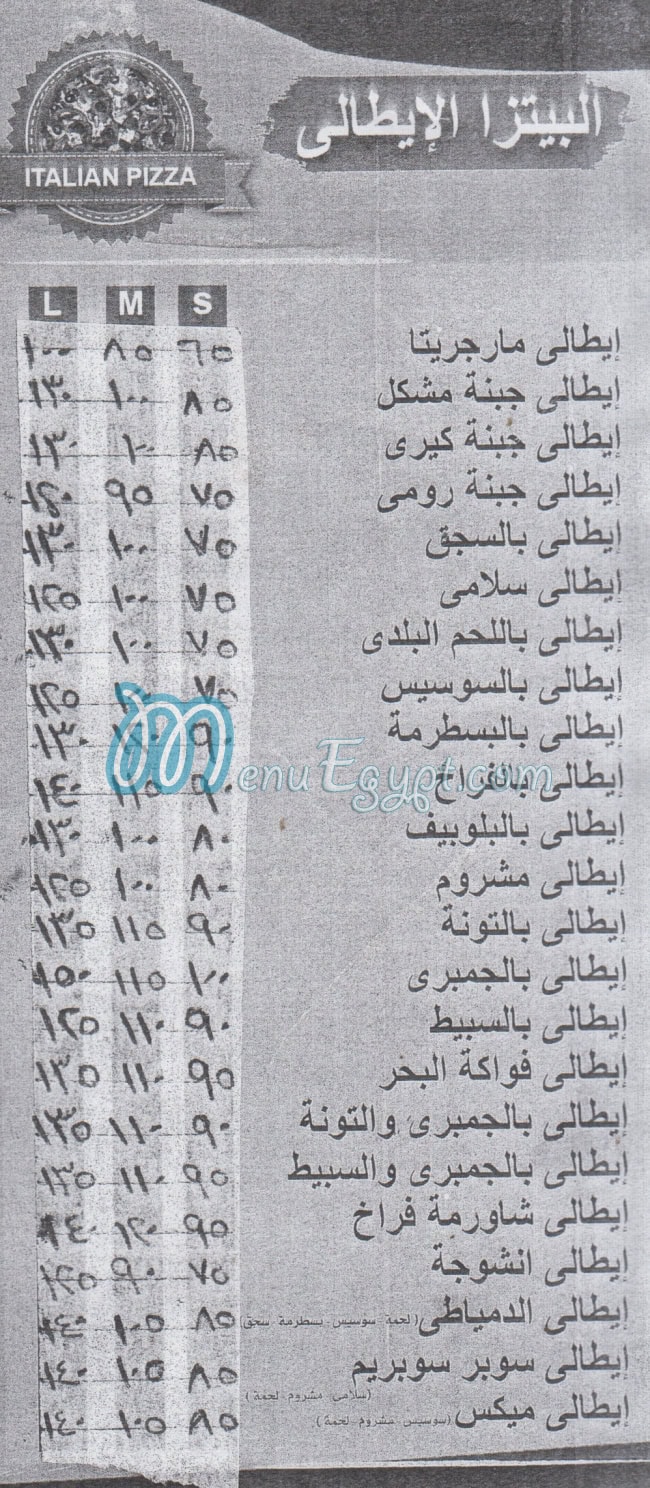 البيتزا الإيطالى
ITALIAN PIZZA
S M L
إيطالى مارجريتا ٦٥ ٨٥ ١٠٠
إيطالى جبنة مشكل ٨٥ ١٠٠ ١٣٠
إيطالى جبنة كيرى ٨٥ ١٠٠ ١٣٠
إيطالى جبنة رومى ٧٥ ٩٥ ١٢٠
إيطالى بالسجق ٧٥ ١٠٠ ١٣٠
إيطالى سلامى ٧٥ ١٠٠ ١٢٥
إيطالى باللحم البلدى ٧٥ ١٠٠ ١٣٠
إيطالى بالسوسيس ٧٥ ١٢٥
إيطالى بالبسطرمة ٩٠ ١٣٠
إيطالى بالفراخ ٩٠ ١١٥ ١٤٠
إيطالى بالبلوبيف ٨٠ ١٠٠ ١٣٠
إيطالى مشروم ٨٠ ١٠٠ ١٢٥
إيطالى بالتونة ٩٠ ١١٥ ١٣٥
إيطالى بالجمبرى ١٠٠ ١١٥ ١٥٠
إيطالى بالسبيط ٩٠ ١١٠ ١٢٥
إيطالى فواكة البحر ٩٥ ١١٠ ١٣٥
إيطالى بالجمبرى والتونة ٩٠ ١١٠ ١٣٥
إيطالى بالجمبرى والسبيط ٩٥ ١١٠ ١٣٥
إيطالى شاورمة فراخ ٩٥ ١٢٠ ١٤٠
إيطالى انشوجة ٧٥ ٩٠ ١٢٥
إيطالى الدمياطى (لحمة سوسيس بسطرمة سجق) ٨٥ ١٠٥ ١٤٠
إيطالى سوبر سوبريم ٨٥ ١٠٥ ١٤٠
(سلامى مشروم لحمة)
إيطالى ميكس (سوسيس مشروم لحمة) ٨٥ ١٠٥ ١٤٠
MenuEgypt.com